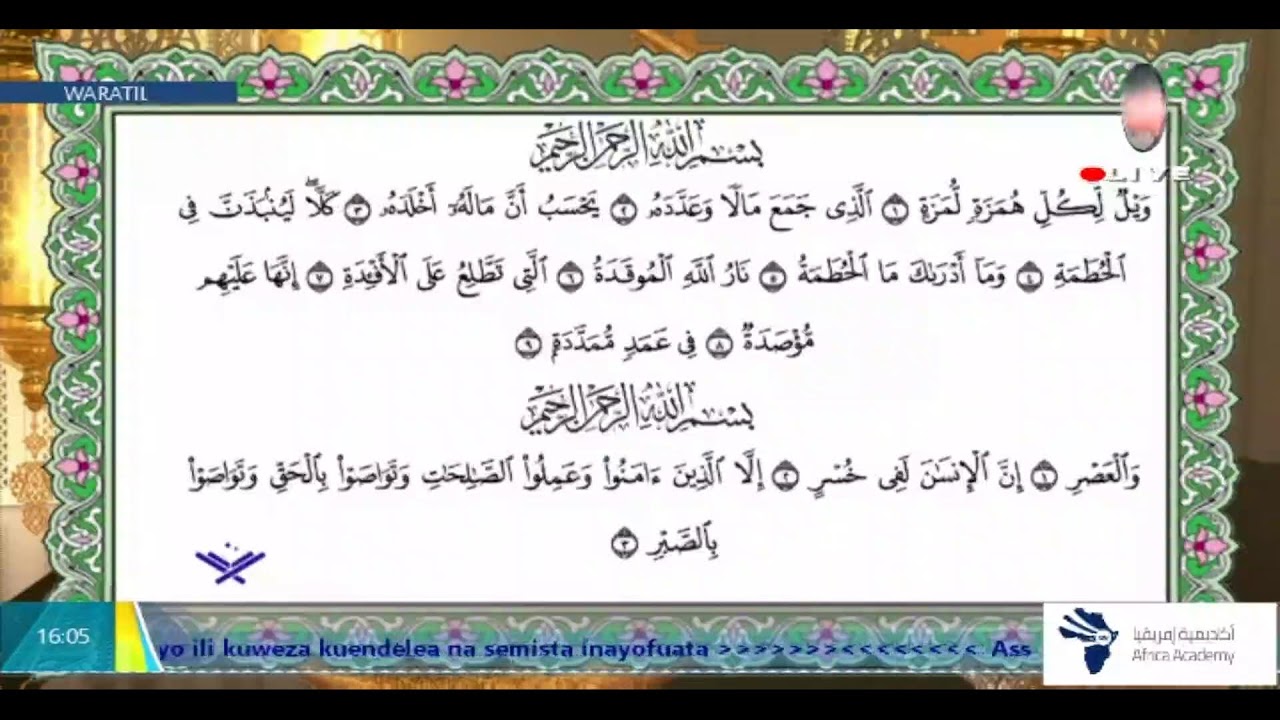 WARATIL
LIVE
بِسْمِ اللَّهِ الرَّحْمَٰنِ الرَّحِيمِ
وَيْلٌ لِّكُلِّ هُمَزَةٍ لُّمَزَةٍ ١ ٱلَّذِى جَمَعَ مَالًا وَعَدَّدَهُۥ ٢ يَحْسَبُ أَنَّ مَالَهُۥٓ أَخْلَدَهُۥ ٣ كَلَّا ۖ لَيُنۢبَذَنَّ فِى
ٱلْحُطَمَةِ ٤ وَمَآ أَدْرَىٰكَ مَا ٱلْحُطَمَةُ ٥ نَارُ ٱللَّهِ ٱلْمُوقَدَةُ ٦ ٱلَّتِى تَطَّلِعُ عَلَى ٱلْأَفْـِٔدَةِ ٧ إِنَّهَا عَلَيْهِم
مُّؤْصَدَةٌ ٨ فِى عَمَدٍ مُّمَدَّدَةٍۭ ٩
بِسْمِ اللَّهِ الرَّحْمَٰنِ الرَّحِيمِ
وَٱلْعَصْرِ ١ إِنَّ ٱلْإِنسَٰنَ لَفِى خُسْرٍ ٢ إِلَّا ٱلَّذِينَ ءَامَنُوا۟ وَعَمِلُوا۟ ٱلصَّٰلِحَٰتِ وَتَوَاصَوْا۟ بِٱلْحَقِّ وَتَوَاصَوْا۟
بِٱلصَّبْرِ ٣
16:05
yo ili kuweza kuendelea na semista inayofuata >>>>>>><<<<<<<< Ass
أكاديمية إفريقيا
Africa Academy